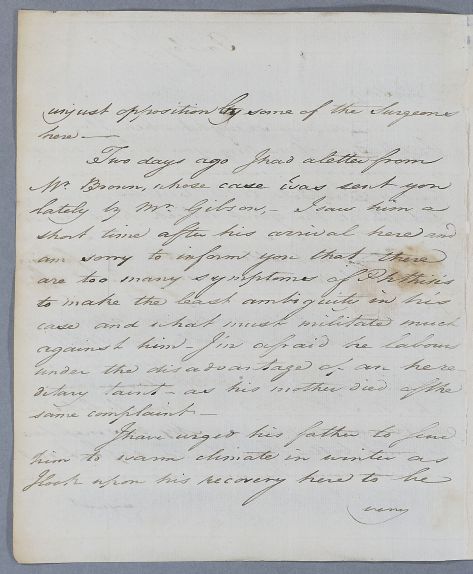 unjust opposition by some of the Surgeons
here —
Two days ago I had a letter from
Mr. Brown, whose case was sent you
lately by Mr. Gibson, — I saw him a
short time after his arrival here and
am sorry to inform you that there
are too many symptoms of Phthisis
to make the least ambiguity in his
case and what must militate much
against him — I'm afraid he labours
under the disadvantage of an here-
ditary taint — as his mother died of the
same complaint —
I have urged his father to send
him to warm climate in winter as
I look upon his recovery here to be
very